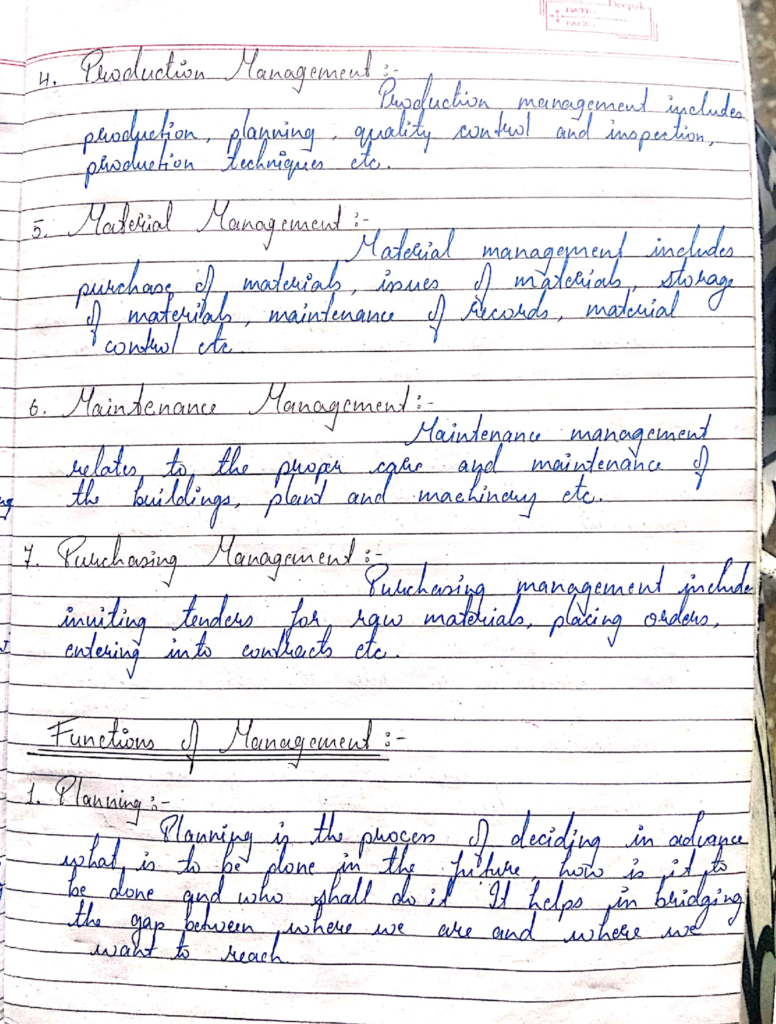 Deepak
DATE:
PAGE:
4. Production Management :-
Production management includes
production, planning, quality control and inspection,
production techniques etc.
5. Material Management :-
Material management includes
purchase of materials, issues of materials, storage
of materials, maintenance of records, material
control etc.
6. Maintenance Management :-
Maintenance management
relates to the proper care and maintenance of
the buildings, plant and machinery etc.
7. Purchasing Management :-
Purchasing management include
inviting tenders for raw materials, placing orders,
entering into contracts etc.
Functions of Management :-
1. Planning :-
Planning is the process of deciding in advance
what is to be done in the future, how is it to
be done and who shall do it. It helps in bridging
the gap between where we are and where we
want to reach.